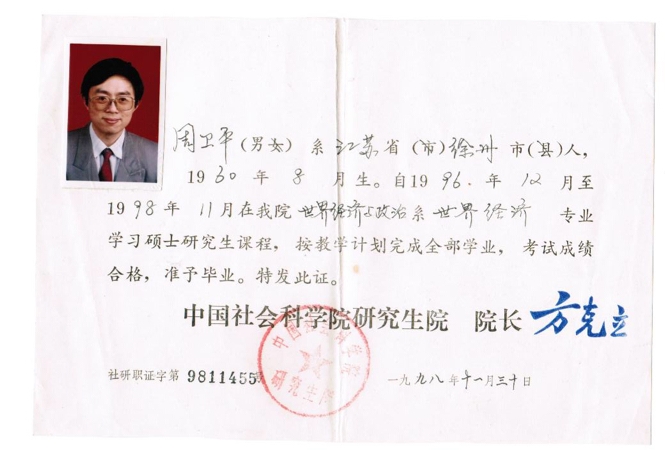 周卫平(男女)系江苏省(市)徐州市(县)人,
1930年8月生。自1996.年12月至
1998年11月在我院世界经济与政治系世界经济 专业
学习硕士研究生课程,按教学计划完成全部学业,考试成绩
合格,准予毕业。特发此证。
中国社会科学院研究生院 院长 方克立
中国社会科学院
研究生院
社研职证字第 9811455号
一九九八年十一月三十日